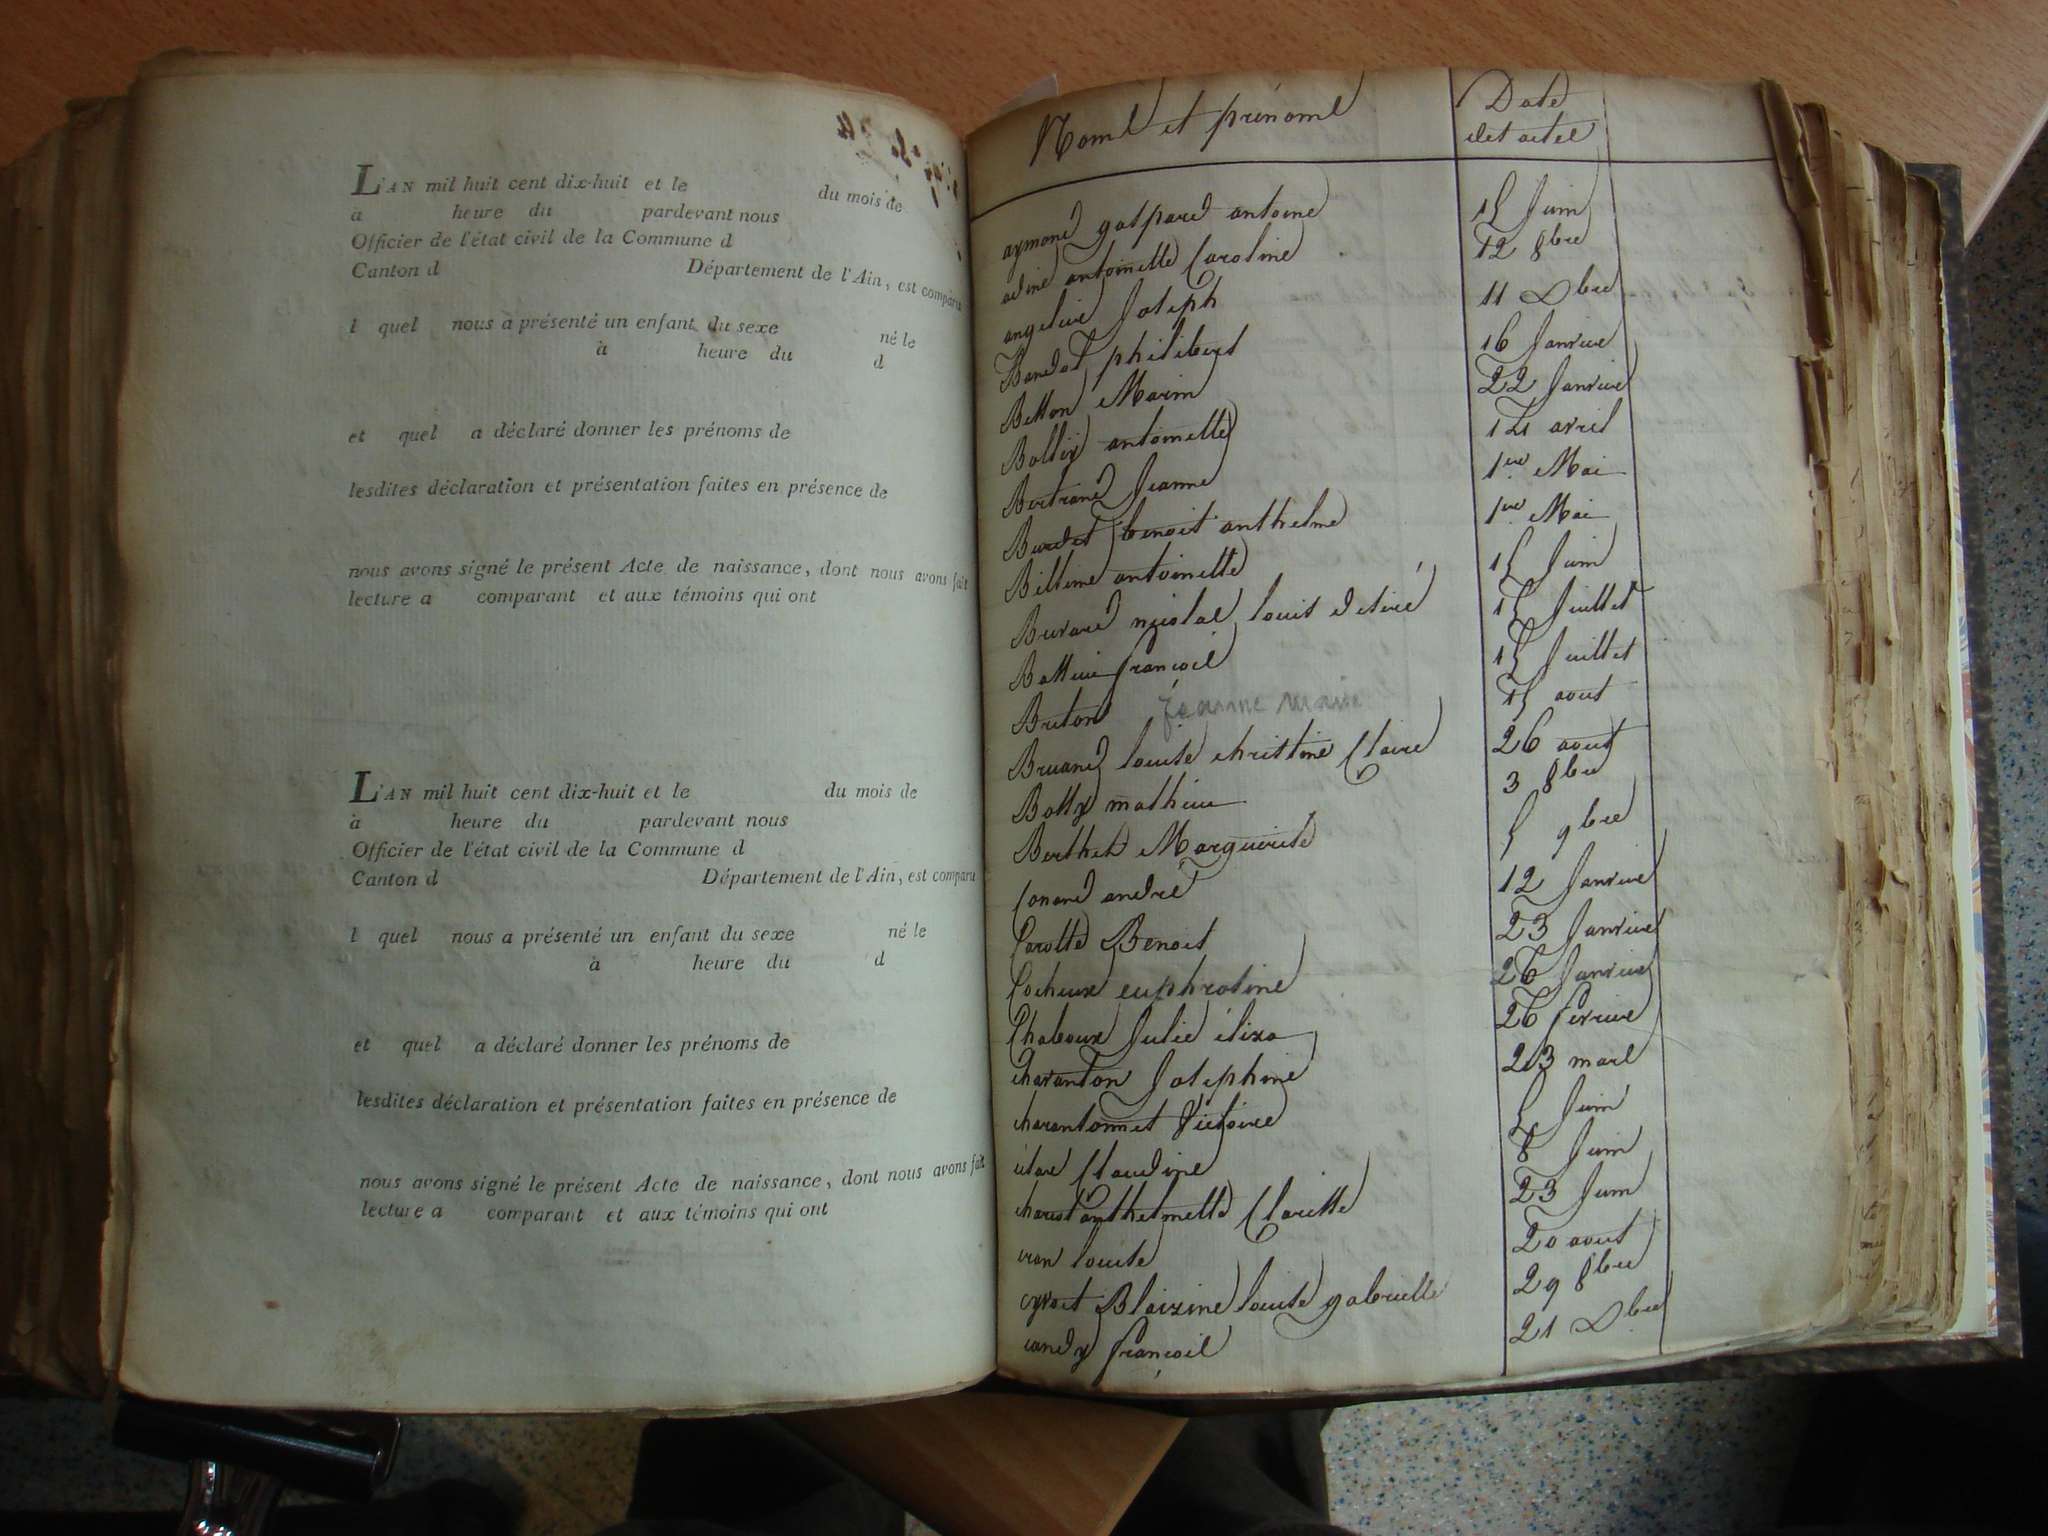 L'AN mil huit cent dix-huit et le du mois de
a heure du pardevant nous
Officier de l'état civil de la Commune d
Canton d Département de l'Ain, est comparu
l quel nous a présenté un enfant du sexe né le
à heure du d
et quel a déclaré donner les prénoms de
lesdites déclaration et présentation faites en présence de
nous avons signé le présent Acte de naissance, dont nous avons fait
lecture a comparant et aux témoins qui ont
L'AN mil huit cent dix-huit et le du mois de
à heure du pardevant nous
Officier de l'état civil de la Commune d
Canton d Département de l'Ain, est comparu
l quel nous a présenté un enfant du sexe né le
à heure du d
et quel a déclaré donner les prénoms de
lesdites déclaration et présentation faites en présence de
nous avons signé le présent Acte de naissance, dont nous avons fait
lecture a comparant et aux témoins qui ont
Noms et prénoms Date
des actes
aymond gaspard antoine 15 Juin
adine antoinette Caroline 12 8bre
Joseph 11 Dbre
philibert 16 Janvier
Betton Marin 22 Janvier
antoinette 14 avril
Bertrand Jeanne 1er Mai
Burdet benoit anthelme 1er Mai
antoinette 15 Juin
nicolas louis desiré 15 Juillet
françois 15 Juillet
Briton Jeanne marie 15 aout
Bruand louise christine Claire 26 aout
Botty mathieu 3 8bre
Berthet Marguerite 5 9bre
Conand andré 12 Janvier
Carotte Benoit 23 Janvier
Cocheux euphrosine 26 Janvier
Chaboux Julie éliza 26 fevrier
charanton Josephine 23 mars
charantonnet Victoire 5 Juin
Claudine 8 Juin
anthelmette Clarisse 23 Juin
louise 20 aout
cyvoct Blaizine louise gabrielle 29 8bre
candy françois 21 Dbre